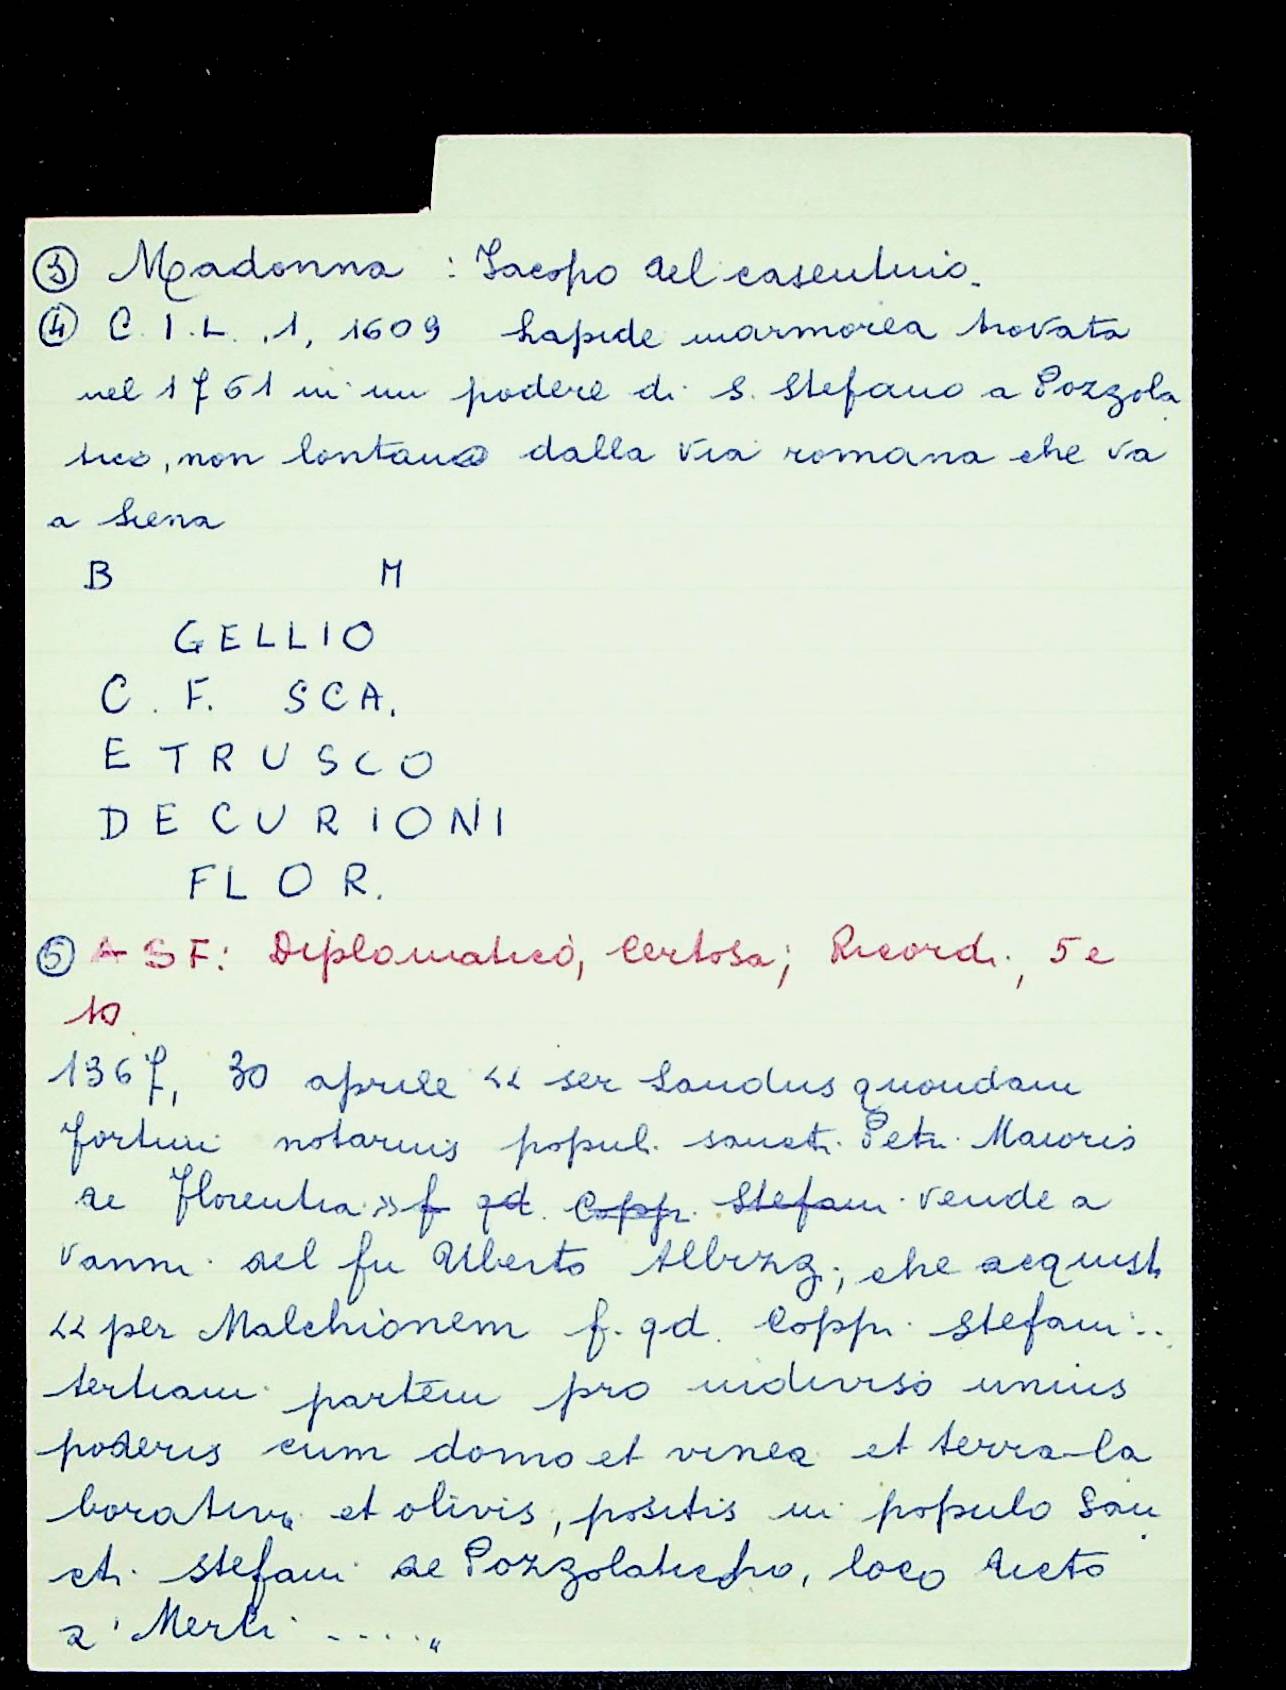 ③ Madonna : Jacopo del casentino.
④ C.I.L. ,1, 1609 Lapide marmorea trovata
nel 1761 in un podere di S. Stefano a Pozzola
tico, non lontano dalla via romana che va
a Siena
B M
GELLIO
C. F. SCA.
ETRUSCO
DECURIONI
FLOR.
⑤ ASF: Diplomatico, Certosa; Ricordi, 5 e
10.
1367, 30 aprile << ser Landus quondam
fortini notarius populi sancti Petri Maioris
de Florentia >> f qd. Coppi Stefani vende a
Vanni del fu Uberto Albizzi, che acquista
<< per Malchionem f. qd. Coppi Stefani ..
tertiam partem pro indiviso unius
poderis cum domo et vinea et terra la
borativa et olivis, positis in populo San
cti Stefani de Pozzolaticho, loco dicto
a' Merli ....."